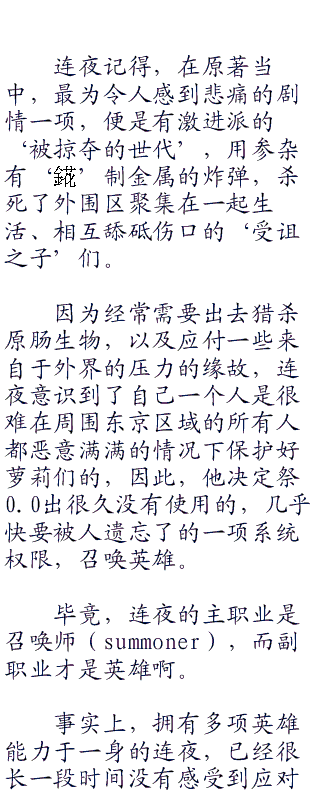 连夜记得，在原著当
中，最为令人感到悲痛的剧
情一项，便是有激进派的
‘被掠夺的世代’，用参杂
有‘錵’制金属的炸弹，杀
死了外围区聚集在一起生
活、相互舔砥伤口的‘受诅
之子’们。
因为经常需要出去猎杀
原肠生物，以及应付一些来
自于外界的压力的缘故，连
夜意识到了自己一个人是很
难在周围东京区域的所有人
都恶意满满的情况下保护好
萝莉们的，因此，他决定祭
0.0出很久没有使用的，几乎
快要被人遗忘了的一项系统
权限，召唤英雄。
毕竟，连夜的主职业是
召唤师（summoner），而副
职业才是英雄啊。
事实上，拥有多项英雄
能力于一身的连夜，已经很
长一段时间没有感受到应对